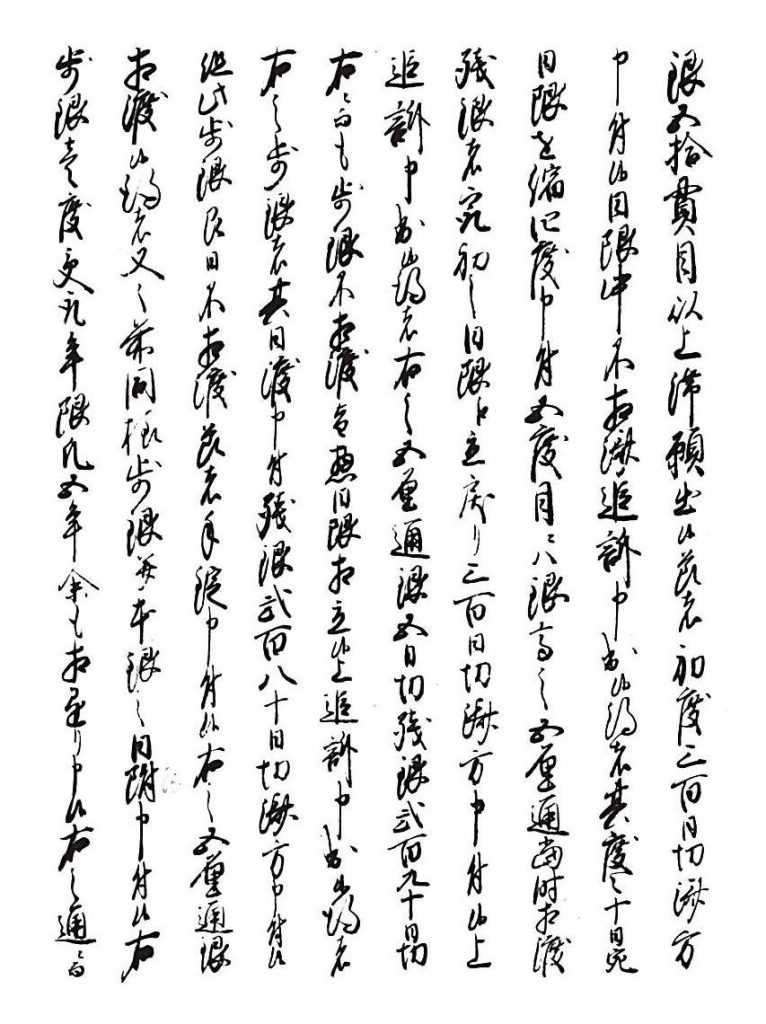 銀五拾貫目以上滞願出候節者初度三百日切済方
申付候日限中不相済追訴申出候得者其度々十日宛
日限を縮四度申付五度目ニハ銀高之五厘通当時相渡
残銀者宛初之日限ニ立戻り三百日切済方申付候上
追訴申出候得者右之五厘通銀五日切残銀弐百九十日切
右ニ而も歩銀不相渡日限相立候上追訴申出候得者
右之歩銀者其日渡申付残銀弐百八十日切済方申付候
但此歩銀即日不相渡節者手鎖申付候右之五厘通銀
相渡候得者又々前同様歩銀并本銀之日附申付候右
歩銀壱度更ニ年限凡五年余も相重り申候右之通ニ而